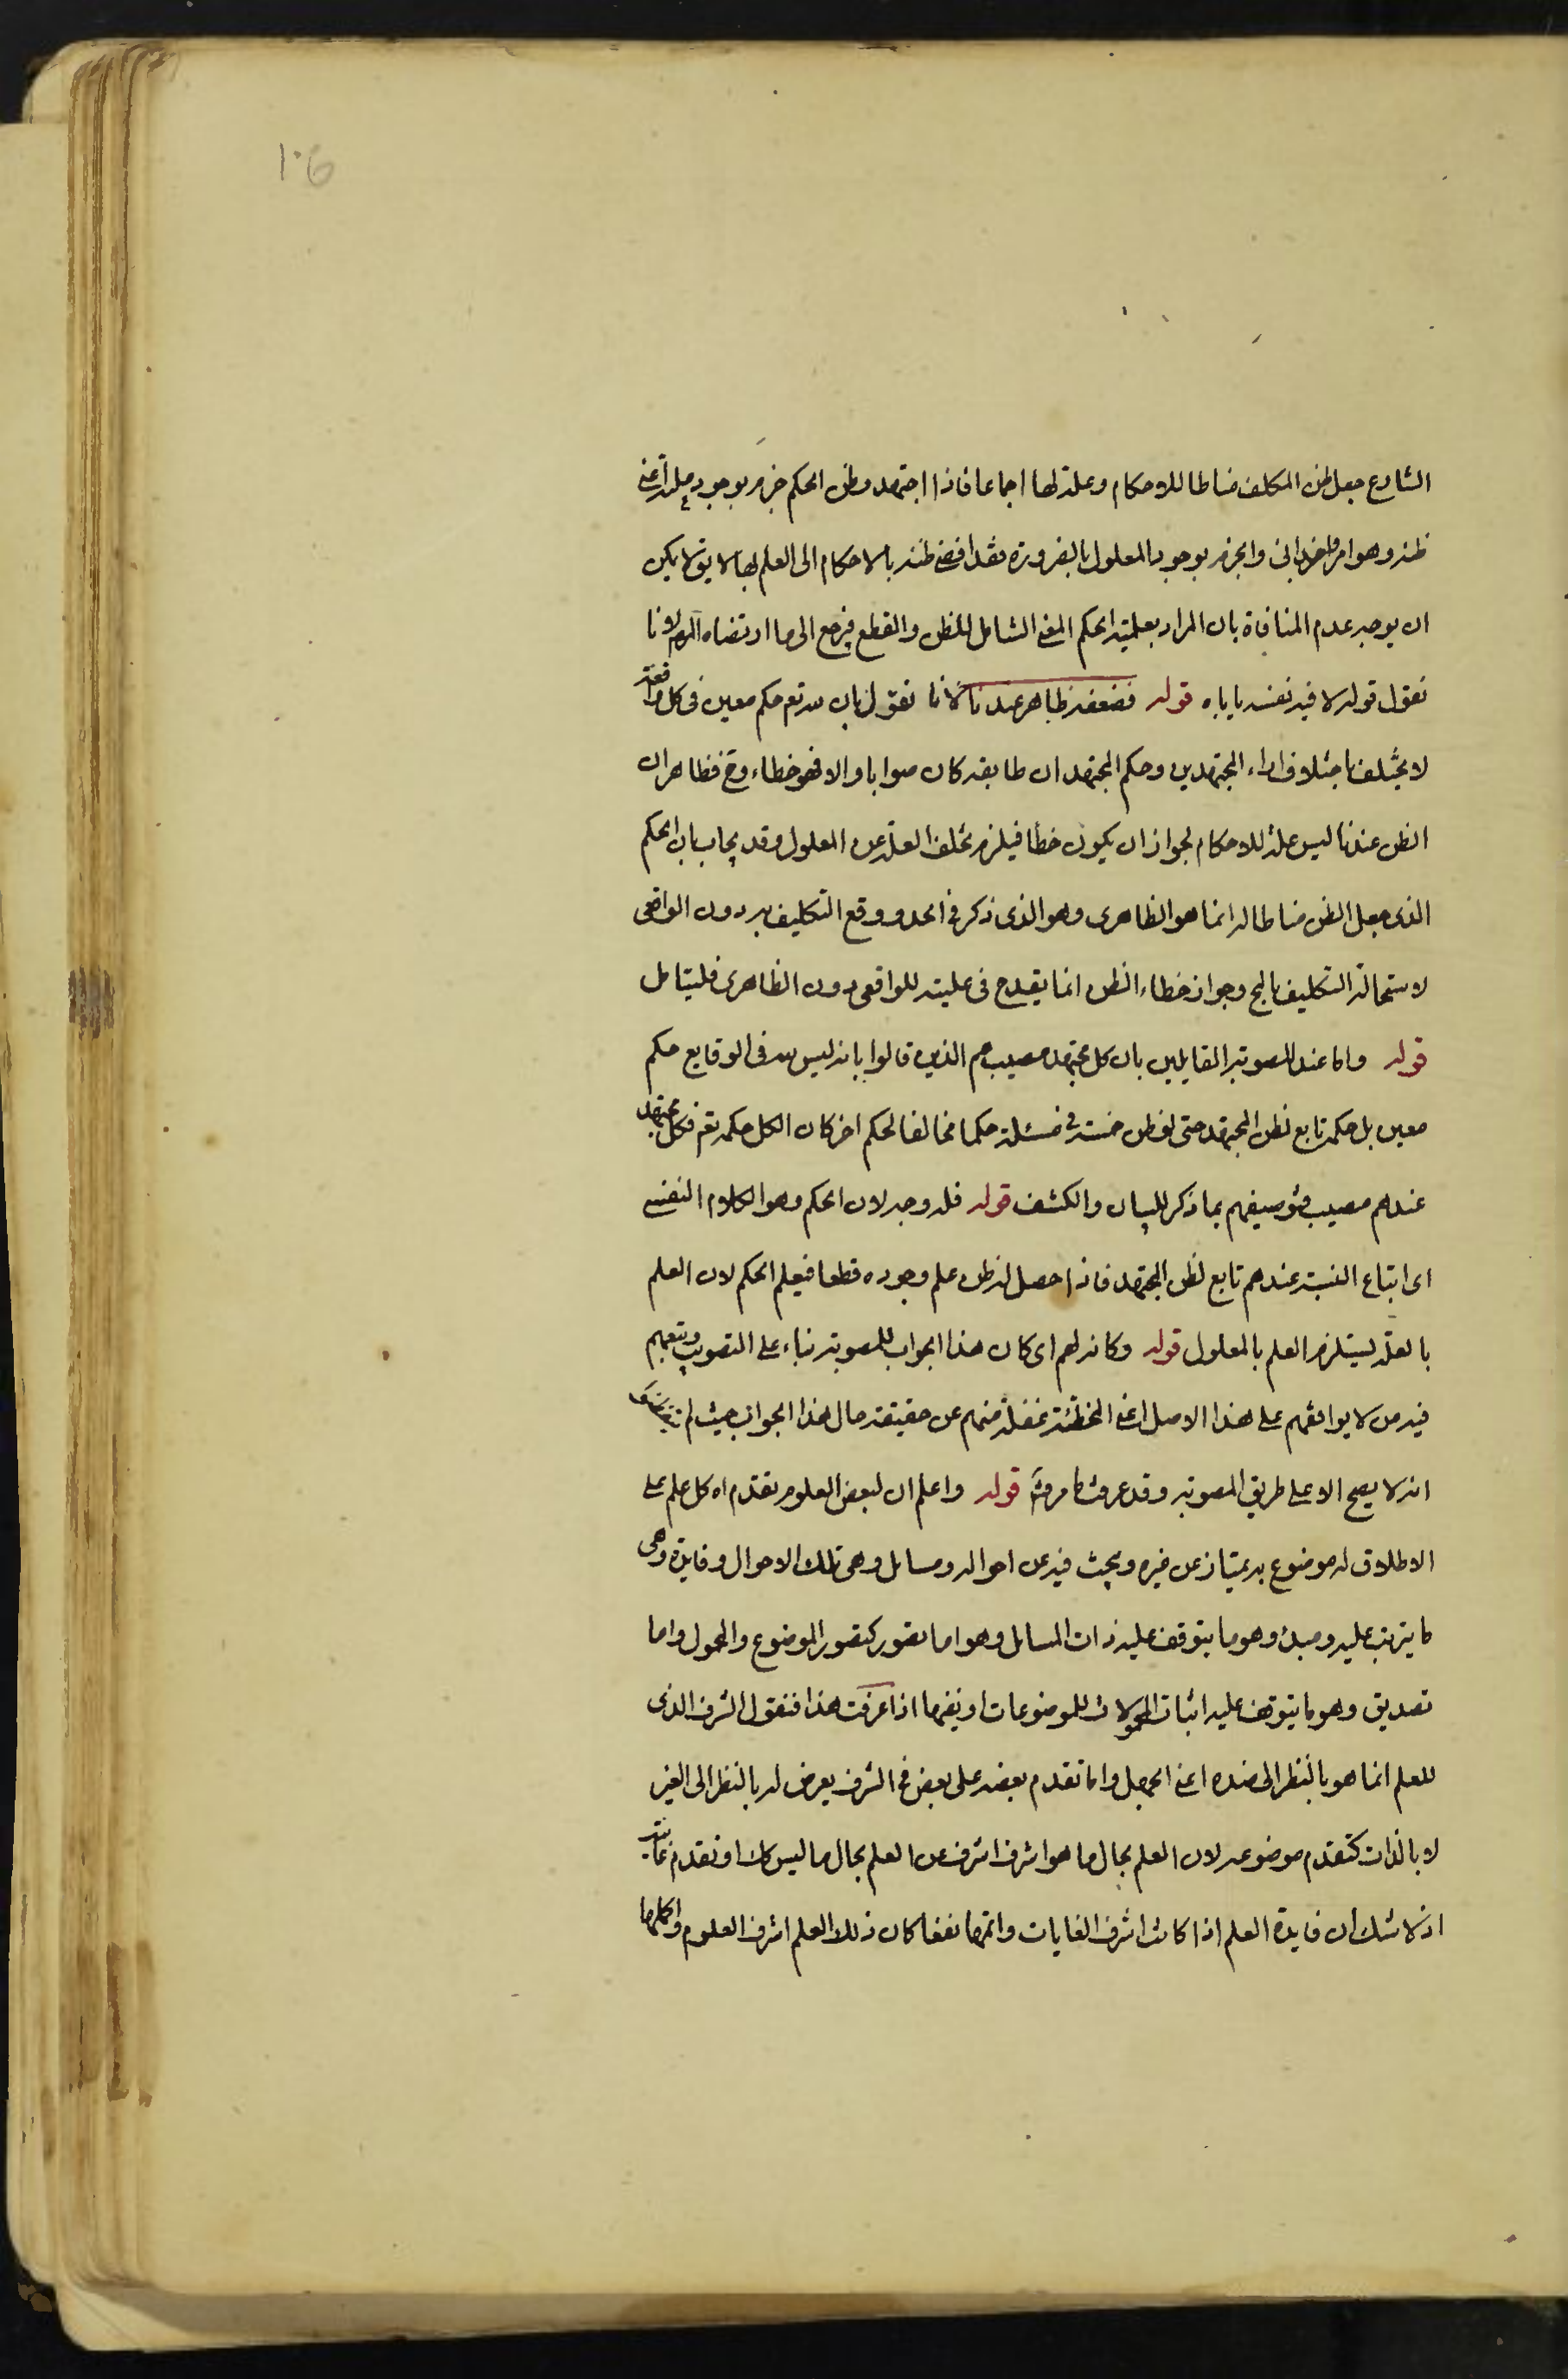 ١٠٥
الشارع جعل ظن المكلف مناطا للاحكام وعلة لها اجماعا فاذا اجتهد وظن الحكم جزم بوجود علته اعنى
ظنه وهو امر وجدانى والجزم بوجود المعلول بالضرورة فقد افضى ظنه بالاحكام الى العلم بها لا يق يمكن
ان يوجه عدم المنافاة بان المراد بعلمية الحكم المعنى الشامل للظن والقطع فيرجع الى ما ارتضاه المص لانا
نقول قوله لا فيه نفسه ياباه قوله فضعفه ظاهر عندنا لانا نقول بان لله تع حكم معين فى كل واقعة
لا يختلف باختلاف اراء المجتهدين وحكم المجتهد ان طابقه كان صوابا والا فهو خطاء وح فظاهر ان
الظن عندنا ليس علة للاحكام لجواز ان يكون خطأ فيلزم تخلف العلة عن المعلول وقد يجاب بان الحكم
الذى جعل الظن مناطا له انما هو الظاهرى وهو الذى ذكر فى الحد ووقع التكليف به دون الواقعى
لاستحالة التكليف بالمح وجواز خطاء الظن انما يقدح فى عليته للواقعى دون الظاهرى فليتامل
قوله واما عند المصوبة القايلين بان كل مجتهد مصيب هم الذين قالوا بانه ليس لله فى الوقايع حكم
معين بل حكمه تابع لظن المجتهد حتى لو ظن خمسة فى مسئلة حكما مخالفا لحكم اخر كان الكل حكمه تع فكل مجتهد
عندهم مصيب فتوصيفهم بما ذكر للبيان والكشف قوله فله وجه لان الحكم وهو الكلام النفسى
اى ايقاع النسبة عندهم تابع لظن المجتهد فاذا حصل له ظن علم وجوده قطعا فيعلم الحكم لان العلم
بالعلة يستلزم العلم بالمعلول قوله وكانه لهم اى كان هذا الجواب للمصوبة بناء على التصويب وتبعهم
فيه من لا يوافقهم على هذا الاصل اعنى المخطئة غفلة منهم عن حقيقة حال هذا الجواب حيث لم
انه لا يصح الا على طريق المصوبة وقد عرفت ما مر قوله واعلم ان لبعض العلوم تقدم اه كل علم على
الاطلاق له موضوع به يمتاز عن غيره ويبحث فيه عن احواله ومسايل وهى تلك الاحوال وفايدة وهى
ما يترتب عليه ومباد وهو ما يتوقف عليه ذات المسايل وهو اما تصور كتصور الموضوع والمحمول واما
تصديق وهو ما يتوقف عليه اثبات المحمولات للموضوعات او نفيها اذا عرفت هذا فنقول الشرف الذى
للعلم انما هو بالنظر الى ضده اعنى الجهل واما تقدم بعضه على بعض فى الشرف يعرض له بالنظر الى الغير
لا بالذات كتقدم موضوعه لان العلم بحال ما هو اشرف اشرف من العلم بحال ما ليس كك او تقدم غايته
اذ لا شك ان فايدة العلم اذا كانت اشرف الغايات واتمها نفعا كان ذلك العلم اشرف العلوم واكملها